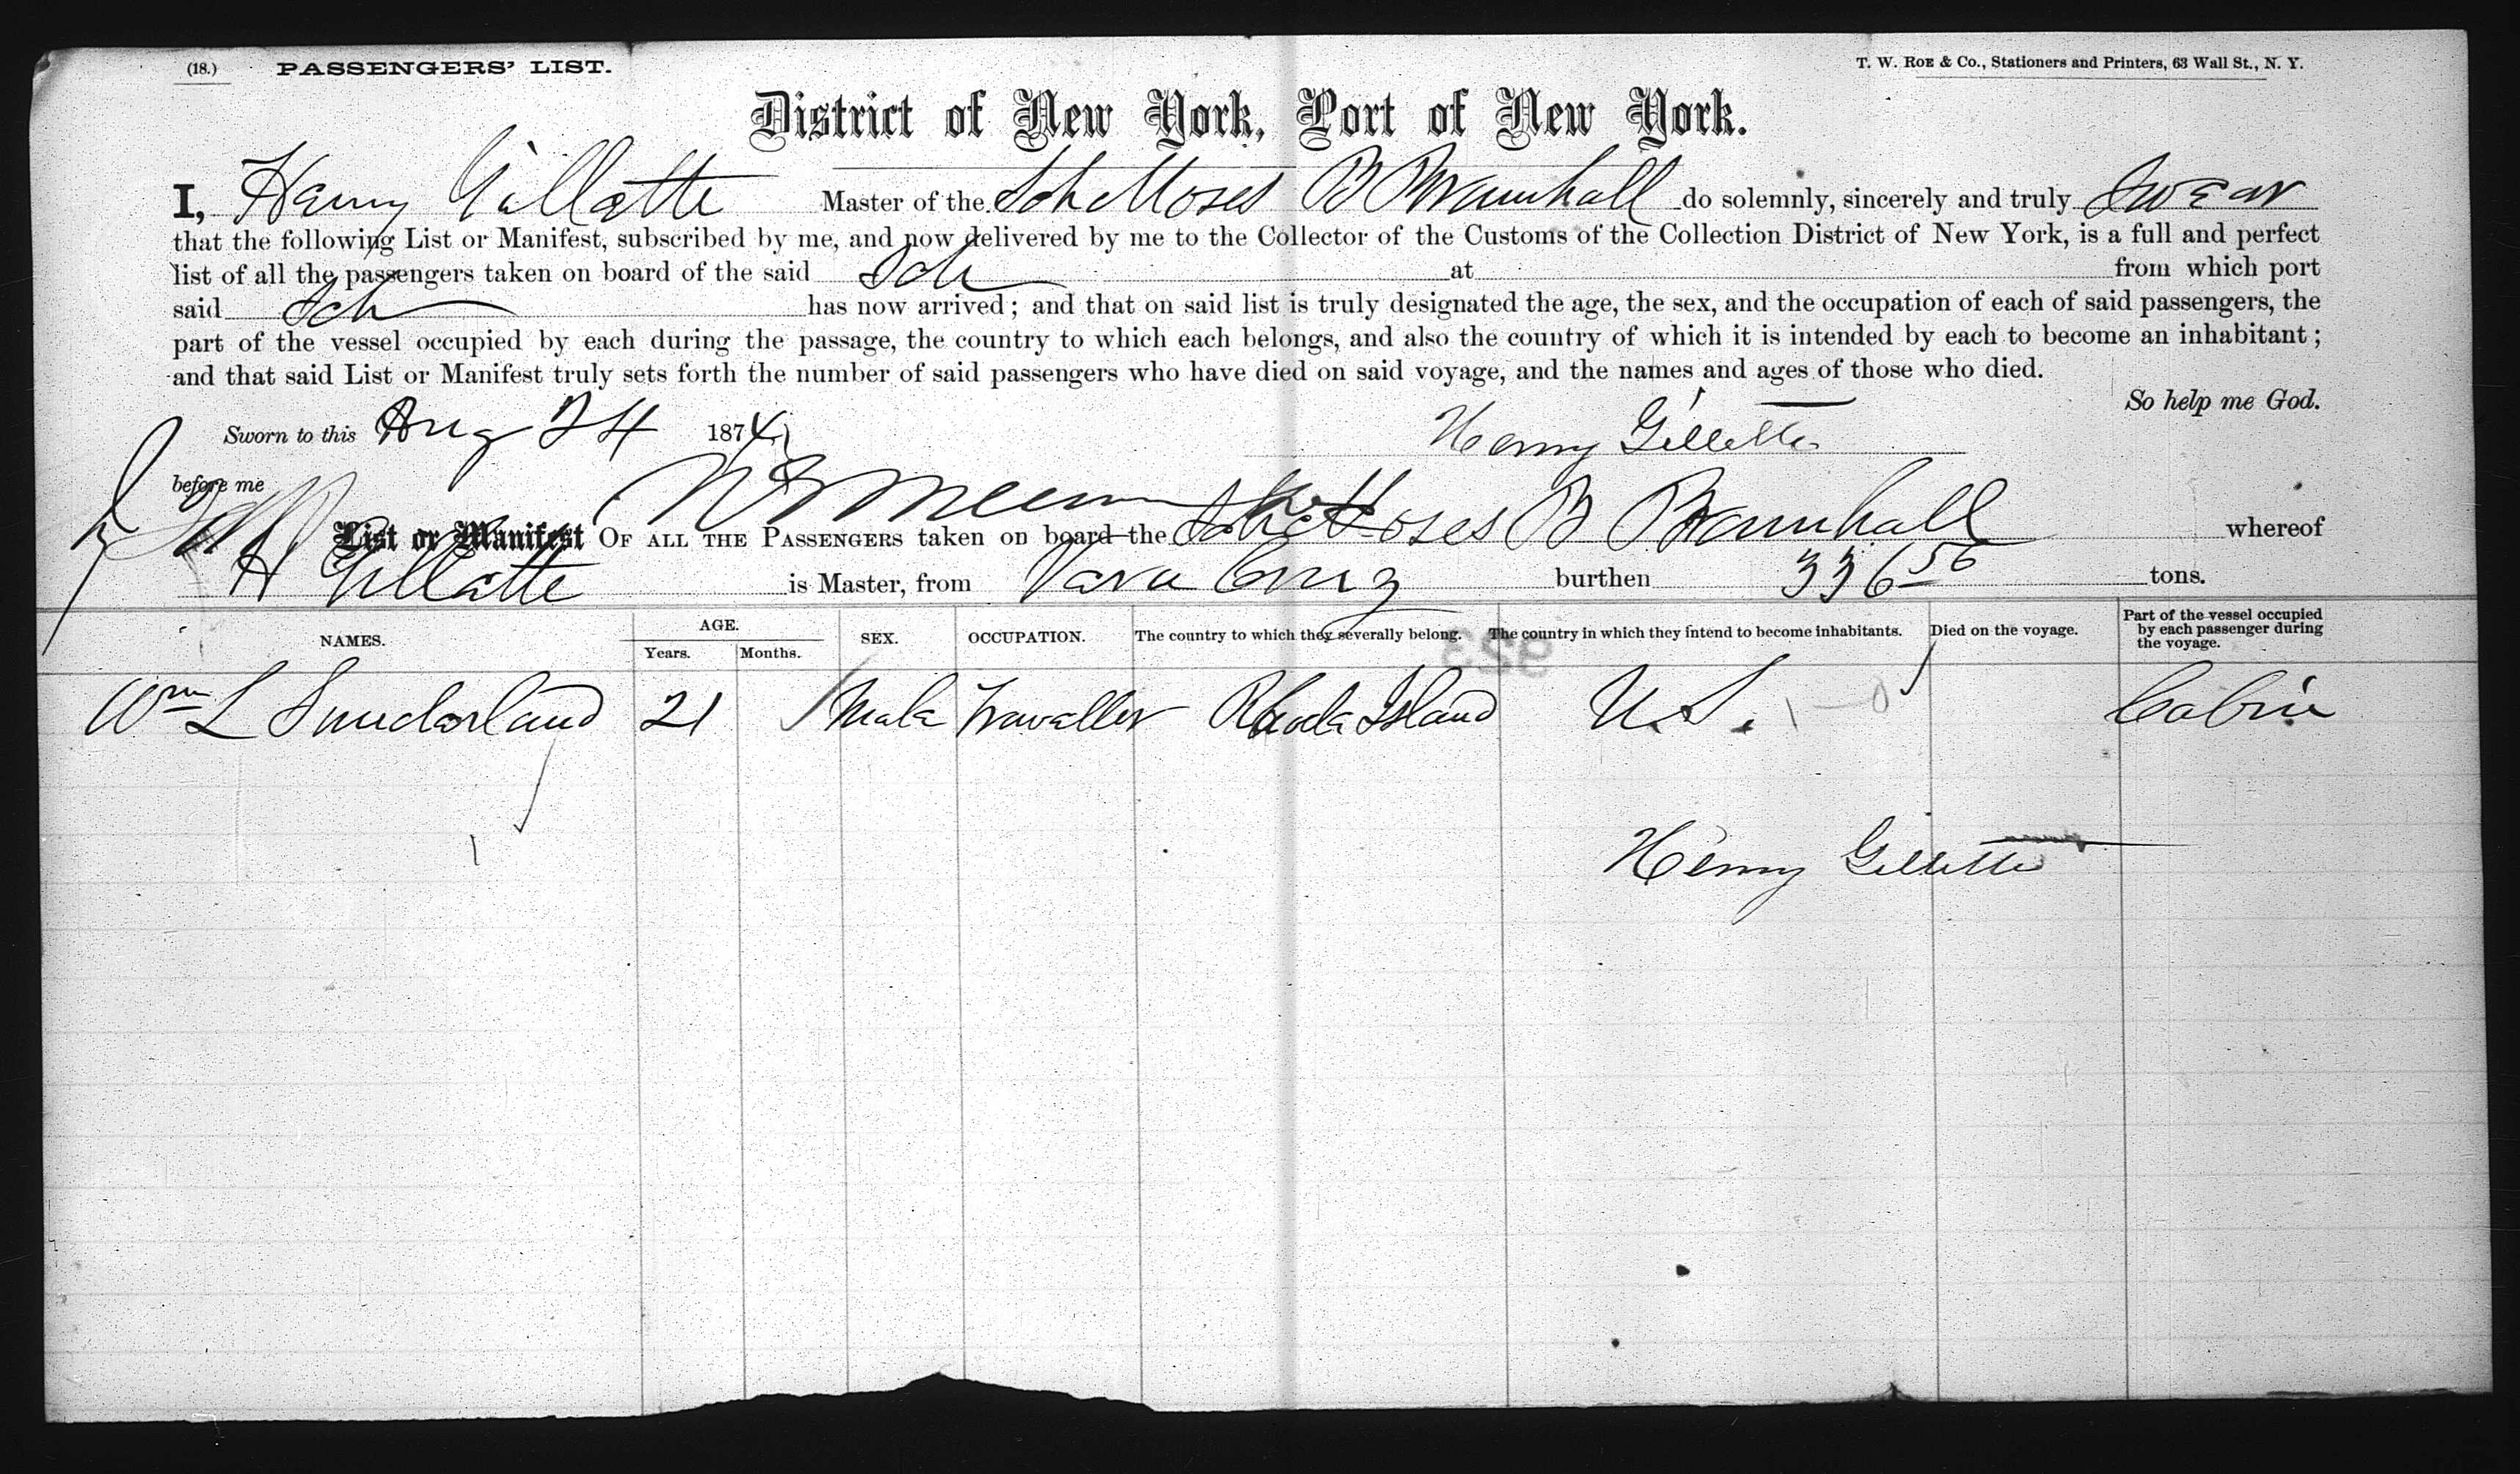 (18.) PASSENGERS' LIST. T. W. ROE & Co., Stationers and Printers, 63 Wall St., N. Y.
District of New York, Port of New York.
I, Henry Gillette Master of the Sch Moses B Bramhall do solemnly, sincerely and truly Swear
that the following List or Manifest, subscribed by me, and now delivered by me to the Collector of the Customs of the Collection District of New York, is a full and perfect
list of all the passengers taken on board of the said Sch at from which port
said Sch has now arrived; and that on said list is truly designated the age, the sex, and the occupation of each of said passengers, the
part of the vessel occupied by each during the passage, the country to which each belongs, and also the country of which it is intended by each to become an inhabitant;
and that said List or Manifest truly sets forth the number of said passengers who have died on said voyage, and the names and ages of those who died.
So help me God.
Sworn to this Aug 24 1874 Henry Gillette
before me
List or Manifest OF ALL THE PASSENGERS taken on board the Sch Moses B Bramhall whereof
H Gillette is Master, from Vera Cruz burthen 336 56 tons.
NAMES. AGE. Years. Months. SEX. OCCUPATION. The country to which they severally belong. The country in which they intend to become inhabitants. Died on the voyage. Part of the vessel occupied by each passenger during the voyage.
923
Wm L Sunderland 21 Male Traveller Rhode Island U.S. Cabin
Henry Gillette